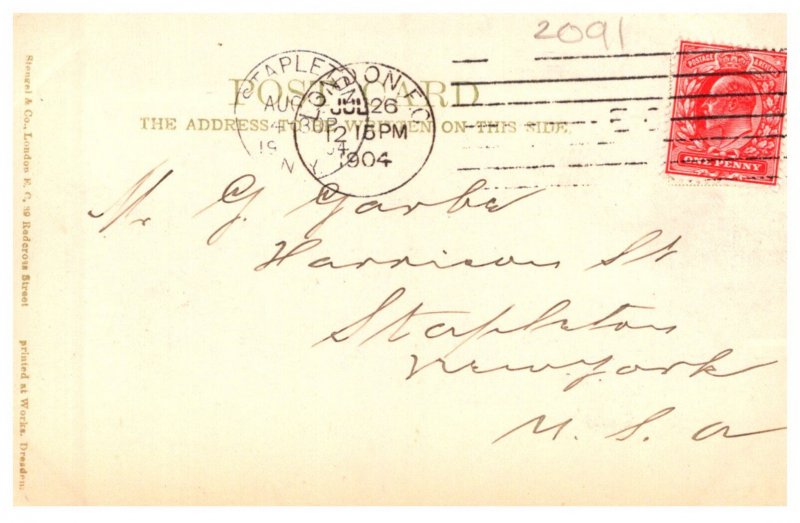 2091
POST CARD
THE ADDRESS TO BE WRITTEN ON THIS SIDE.
STAPLETON
AUG
4
N.Y.
LONDON E.C.
JUL 26
12 15PM
1904
POSTAGE
ONE PENNY
Mr G. Garbe
Harrison St
Stapleton
New york
U. S. a
Stengel & Co., London E. C. 39 Redcross Street printed at Works. Dresden.